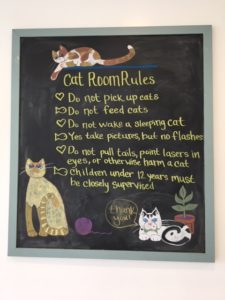 Cat Room Rules
Do not pick up cats
Do not feed cats
Do not wake a sleeping cat
Yes take pictures, but no flashes
Do not pull tails, point lasers in
eyes, or otherwise harm a cat
Children under 12 years must
be closely supervised
thank
you!